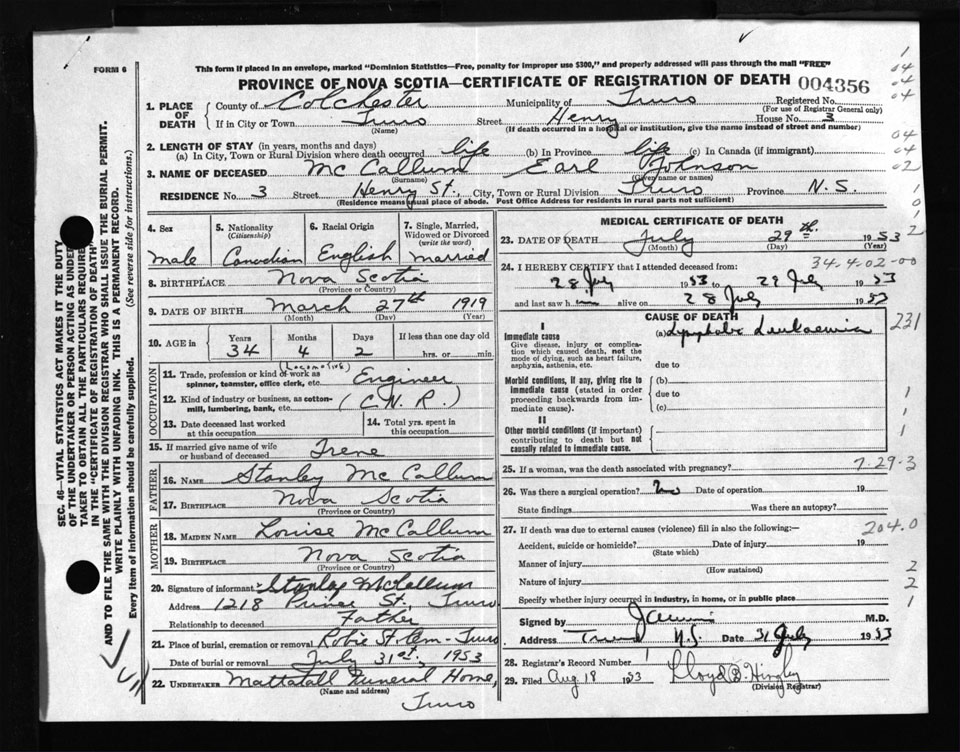 FORM 6
This form if placed in an envelope, marked "Dominion Statistics—Free, penalty for improper use $300," and properly addressed will pass through the mail "FREE"
PROVINCE OF NOVA SCOTIA—CERTIFICATE OF REGISTRATION OF DEATH 004356
1. PLACE OF DEATH
County of Colchester Municipality of Truro Registered No.
(For use of Registrar General only)
If in City or Town Truro Street Henry House No. 3
(Name) (If death occurred in a hospital or institution, give the name instead of street and number)
2. LENGTH OF STAY (in years, months and days)
(a) In City, Town or Rural Division where death occurred life (b) In Province life (c) In Canada (if immigrant)
3. NAME OF DECEASED Mc Callum Earl Johnson
(Surname) (Given name or names)
RESIDENCE No. 3 Street Henry St., City, Town or Rural Division Truro Province N.S.
(Residence means usual place of abode. Post Office Address for residents in rural parts not sufficient)
4. Sex 5. Nationality (Citizenship) 6. Racial Origin 7. Single, Married, Widowed or Divorced (write the word)
Male Canadian English Married
8. BIRTHPLACE Nova Scotia
(Province or Country)
9. DATE OF BIRTH March 27th 1919
(Month) (Day) (Year)
10. AGE in Years Months Days If less than one day old
34 4 2 hrs. or min.
OCCUPATION
11. Trade, profession or kind of work as spinner, teamster, office clerk, etc. (Locomotive) Engineer
12. Kind of industry or business, as cotton-mill, lumbering, bank, etc. (C.N.R.)
13. Date deceased last worked at this occupation
14. Total yrs. spent in this occupation
15. If married give name of wife or husband of deceased Irene
FATHER
16. NAME Stanley Mc Callum
17. BIRTHPLACE Nova Scotia
(Province or Country)
MOTHER
18. MAIDEN NAME Louise Mc Callum
19. BIRTHPLACE Nova Scotia
(Province or Country)
20. Signature of informant Stanley McCallum
Address 1218 Prince St., Truro
Relationship to deceased Father
21. Place of burial, cremation or removal Robie St. Cem- Truro
Date of burial or removal July 31st, 1953
22. UNDERTAKER Mattatall Funeral Home,
(Name and address)
Truro
MEDICAL CERTIFICATE OF DEATH
23. DATE OF DEATH July 29th 1953
(Month) (Day) (Year)
34.4-02-00
24. I HEREBY CERTIFY that I attended deceased from:
28 July 1953 to 29 July 1953
and last saw him alive on 28 July 1953
CAUSE OF DEATH
I
Immediate cause (a) Lymphatic Leukaemia 231
Give disease, injury or complication which caused death, not the mode of dying, such as heart failure, asphyxia, asthenia, etc.
due to
Morbid conditions, if any, giving rise to immediate cause (stated in order proceeding backwards from immediate cause).
(b)
due to
(c)
II
Other morbid conditions (if important) contributing to death but not causally related to immediate cause.
25. If a woman, was the death associated with pregnancy? 7-29-3
26. Was there a surgical operation? no Date of operation 19
State findings Was there an autopsy?
27. If death was due to external causes (violence) fill in also the following:— 204.0
Accident, suicide or homicide? Date of injury 19
(State which)
Manner of injury
(How sustained)
Nature of injury
Specify whether injury occurred in industry, in home, or in public place
Signed by M.D.
Address Truro N.S. Date 31 July 1953
28. Registrar's Record Number
29. Filed Aug 18 1953 Lloyd B. Hingley
(Division Registrar)
SEC. 46—VITAL STATISTICS ACT MAKES IT THE DUTY
OF THE UNDERTAKER OR PERSON ACTING AS UNDER
TAKER TO OBTAIN ALL THE PARTICULARS REQUIRE
IN THE "CERTIFICATE OF REGISTRATION OF DEATH"
AND TO FILE THE SAME WITH THE DIVISION REGISTRAR WHO SHALL ISSUE THE BURIAL PERMIT.
WRITE PLAINLY WITH UNFADING INK. THIS IS A PERMANENT RECORD.
Every item of information should be carefully supplied. (See reverse side for instructions.)